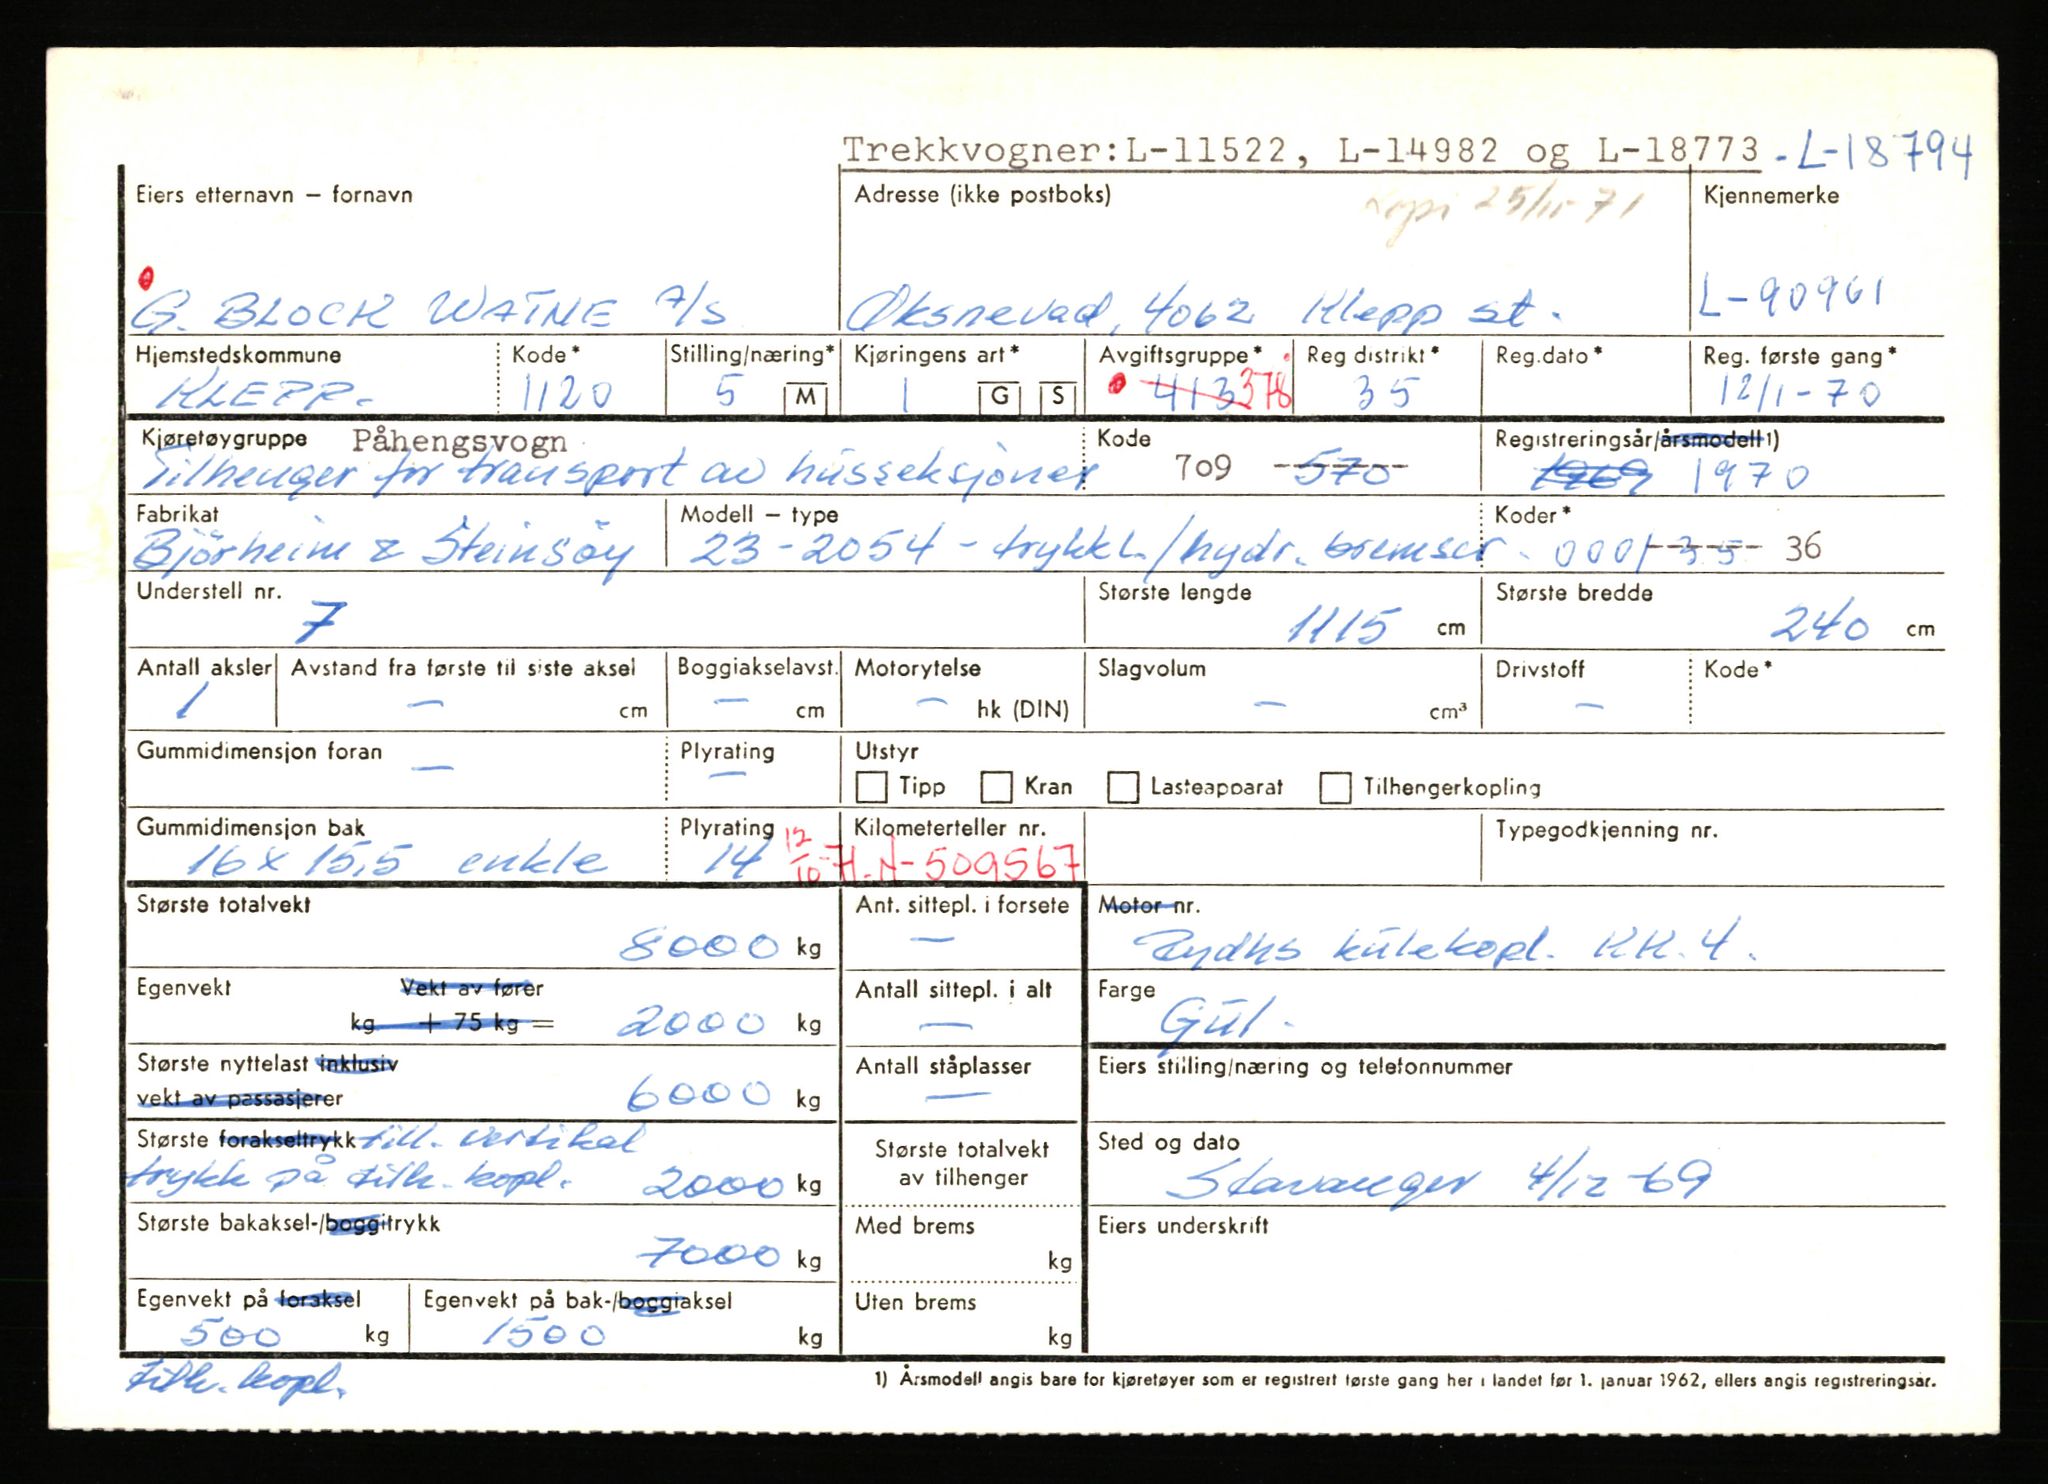 Trekkvogner: L-11522, L-14982 og L-18773 - L-18794
Eiers etternavn – fornavn
Adresse (ikke postboks)
Kopi 25/11-71
Kjennemerke
G. BLOCK WATNE A/S
Øksnevad, 4062 Klepp st.
L-90961
Hjemstedskommune Kode* Stilling/næring* Kjøringens art* Avgiftsgruppe* Reg distrikt* Reg.dato* Reg. første gang*
KLEPP. 1120 5 M 1 G S 413 378 35 12/1-70
Kjøretøygruppe Påhengsvogn Kode Registreringsår/årsmodell 1)
Tilhenger for transport av husseksjoner 709 570 1969 1970
Fabrikat Modell – type Koder*
Bjørheim & Steinsøy 23-2054 - trykkl./hydr. bremser. 000/ 35 36
Understell nr. Største lengde Største bredde
7 1115 cm 240 cm
Antall aksler Avstand fra første til siste aksel Boggiakselavst. Motorytelse Slagvolum Drivstoff Kode*
1 – cm – cm – hk (DIN) – cm³ –
Gummidimensjon foran Plyrating Utstyr
– – Tipp Kran Lasteapparat Tilhengerkopling
Gummidimensjon bak Plyrating Kilometerteller nr. Typegodkjenning nr.
16 x 15,5 enkle 14 12/10-71. N-509567
Største totalvekt Ant. sittepl. i forsete Motor nr.
8000 kg – kulekopl. KK. 4.
Egenvekt Vekt av fører Antall sittepl. i alt Farge
kg + 75 kg = 2000 kg – Gul.
Største nyttelast inklusiv Antall ståplasser Eiers stilling/næring og telefonnummer
vekt av passasjerer 6000 kg –
Største forakseltrykk till. vertikal Største totalvekt Sted og dato
trykk på tilh. kopl. 2000 kg av tilhenger Stavanger 4/12-69
Største bakaksel-/boggitrykk Med brems Eiers underskrift
7000 kg kg
Egenvekt på foraksel Egenvekt på bak-/boggiaksel Uten brems
500 kg 1500 kg kg
tilh. kopl.
1) Årsmodell angis bare for kjøretøyer som er registrert første gang her i landet før 1. januar 1962, ellers angis registreringsår.